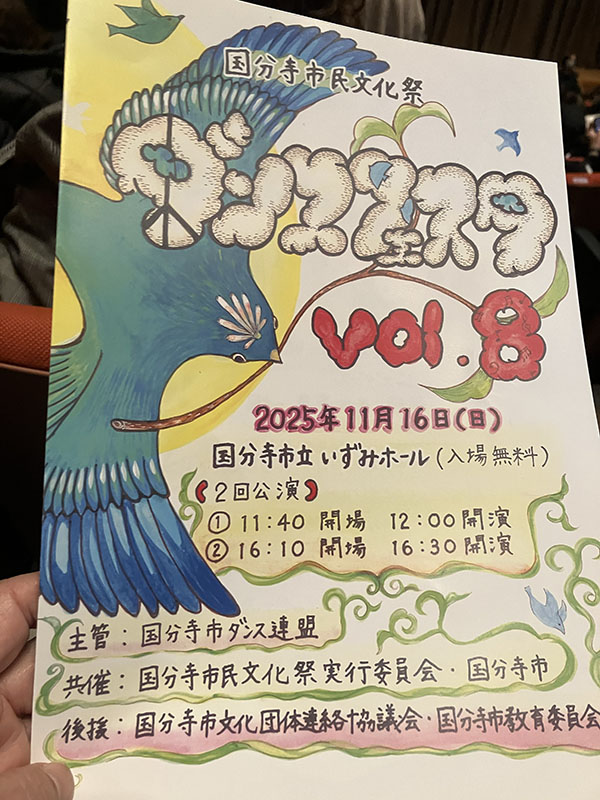 国分寺市民文化祭
ダンスフェスタ
vol.8
2025年11月16日(日)
国分寺市立いずみホール(入場無料)
【2回公演】
① 11:40 開場 12:00 開演
② 16:10 開場 16:30 開演
主管:国分寺市ダンス連盟
共催:国分寺市民文化祭実行委員会・国分寺市
後援:国分寺市文化団体連絡協議会・国分寺市教育委員会